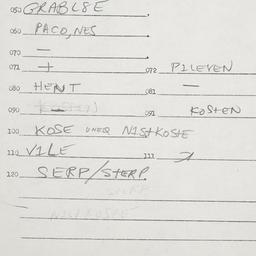 050 GRABLJE
060 PACO, NES
070 —
071 + 072 PILEVEN
080 HENT 081 —
090 — 091 KOSTEN
100 KOSE NISTKOSTE
110 VILE 111
120 SERP/STERP